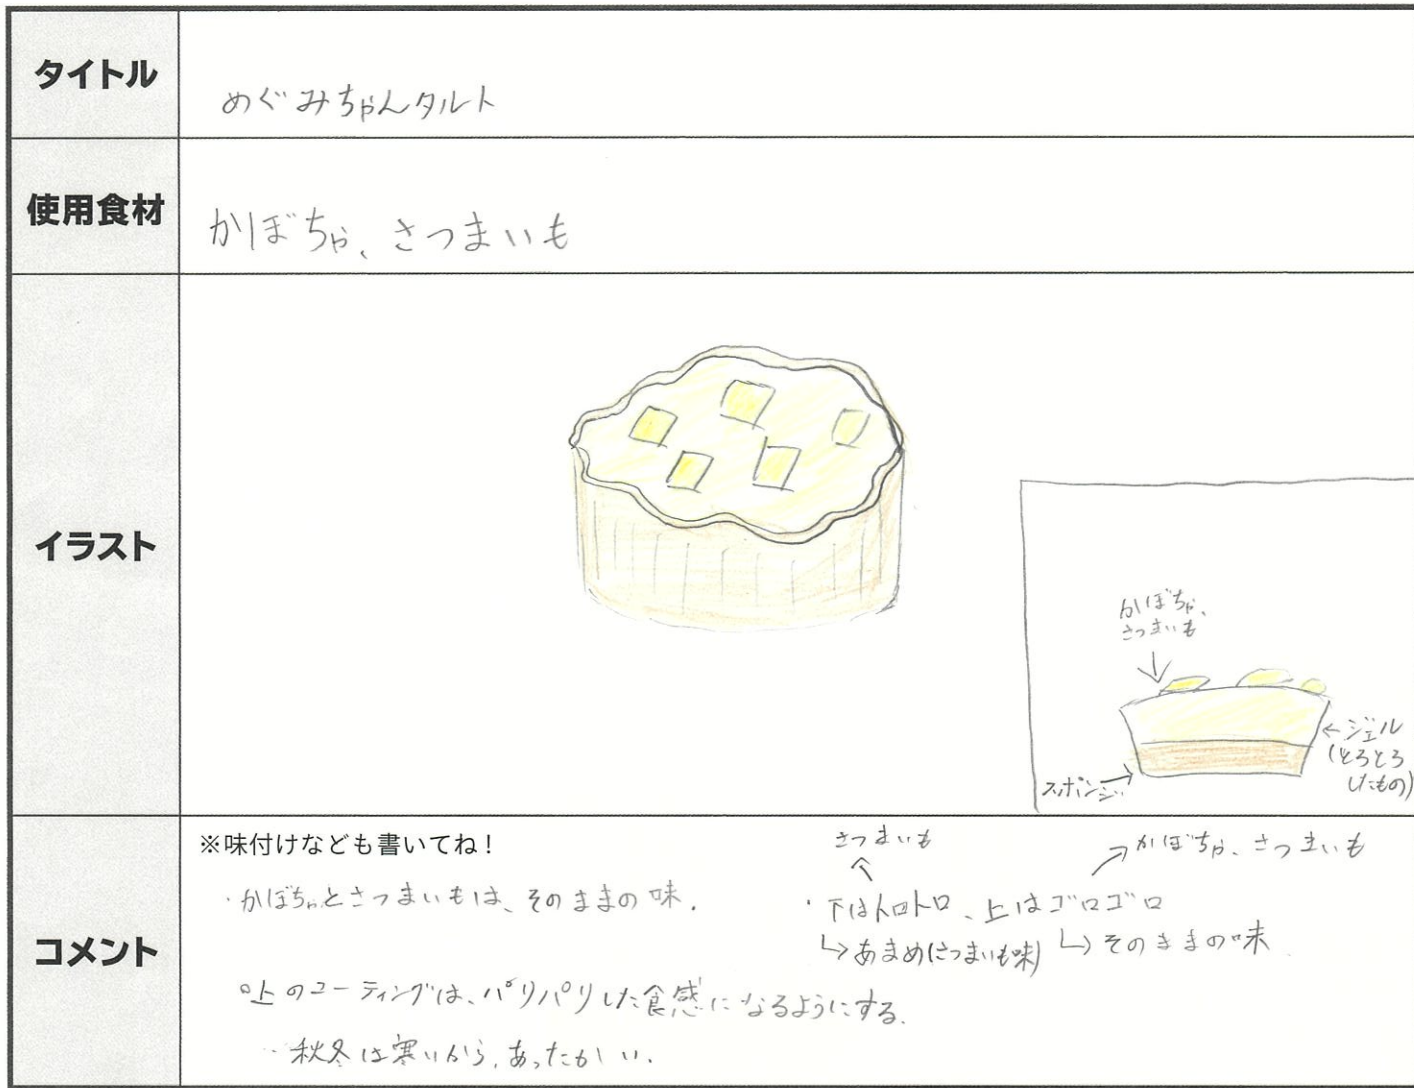 タイトル
めぐみちゃんタルト
使用食材
かぼちゃ、さつまいも
イラスト
かぼちゃ、
さつまいも
←ジェル
(とろとろ
したもの)
スポンジ→
コメント
※味付けなども書いてね!
・かぼちゃとさつまいもは、そのままの味.
さつまいも
かぼちゃ、さつまいも
・下はトロトロ、上はゴロゴロ
↳あまめ(さつまいも味) ↳そのままの味
上のコーティングは、パリパリした食感になるようにする.
・秋冬は寒いから,あったかい.